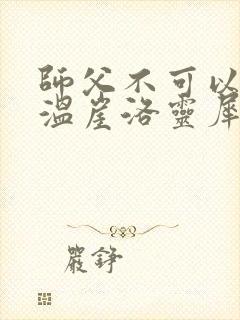 師父不可以
溫崖洛靈犀
嚴錚